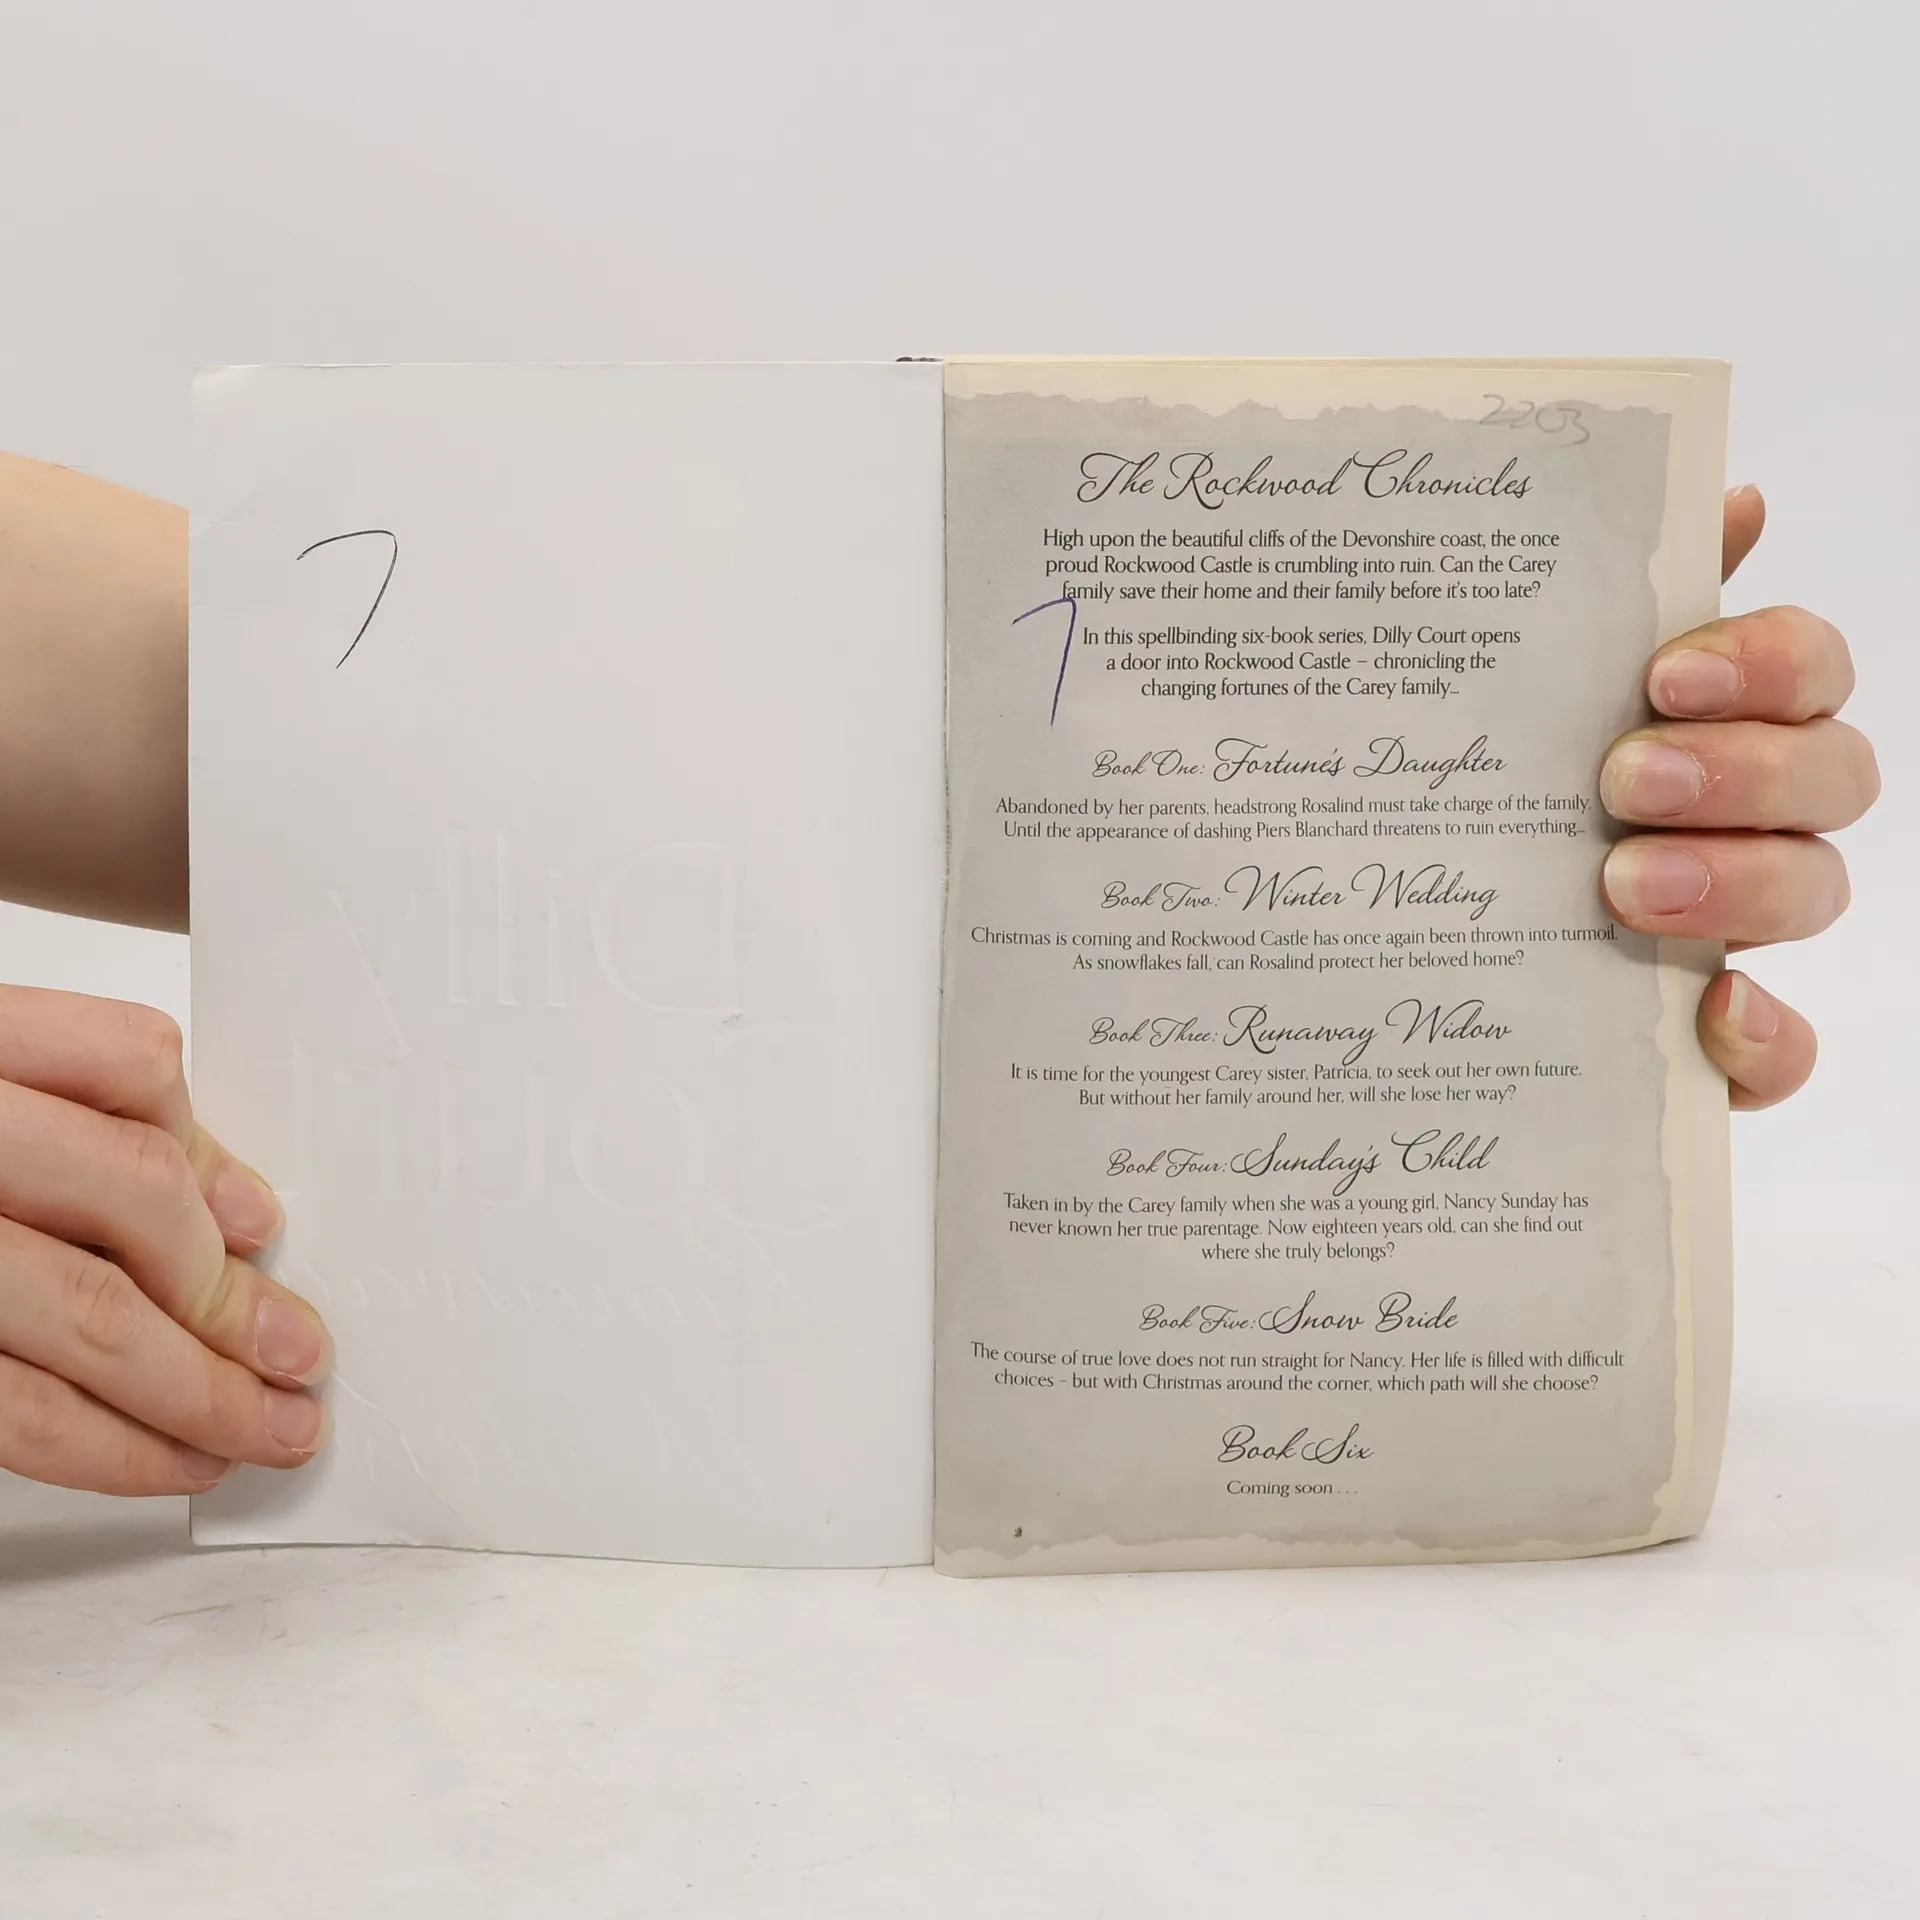 7
Dilly
Court
2203
The Rockwood Chronicles
High upon the beautiful cliffs of the Devonshire coast, the once
proud Rockwood Castle is crumbling into ruin. Can the Carey
family save their home and their family before it's too late?
7
In this spellbinding six-book series, Dilly Court opens
a door into Rockwood Castle – chronicling the
changing fortunes of the Carey family...
Book One: Fortune's Daughter
Abandoned by her parents, headstrong Rosalind must take charge of the family.
Until the appearance of dashing Piers Blanchard threatens to ruin everything...
Book Two: Winter Wedding
Christmas is coming and Rockwood Castle has once again been thrown into turmoil.
As snowflakes fall, can Rosalind protect her beloved home?
Book Three: Runaway Widow
It is time for the youngest Carey sister, Patricia, to seek out her own future.
But without her family around her, will she lose her way?
Book Four: Sunday's Child
Taken in by the Carey family when she was a young girl, Nancy Sunday has
never known her true parentage. Now eighteen years old, can she find out
where she truly belongs?
Book Five: Snow Bride
The course of true love does not run straight for Nancy. Her life is filled with difficult
choices – but with Christmas around the corner, which path will she choose?
Book Six
Coming soon . . .